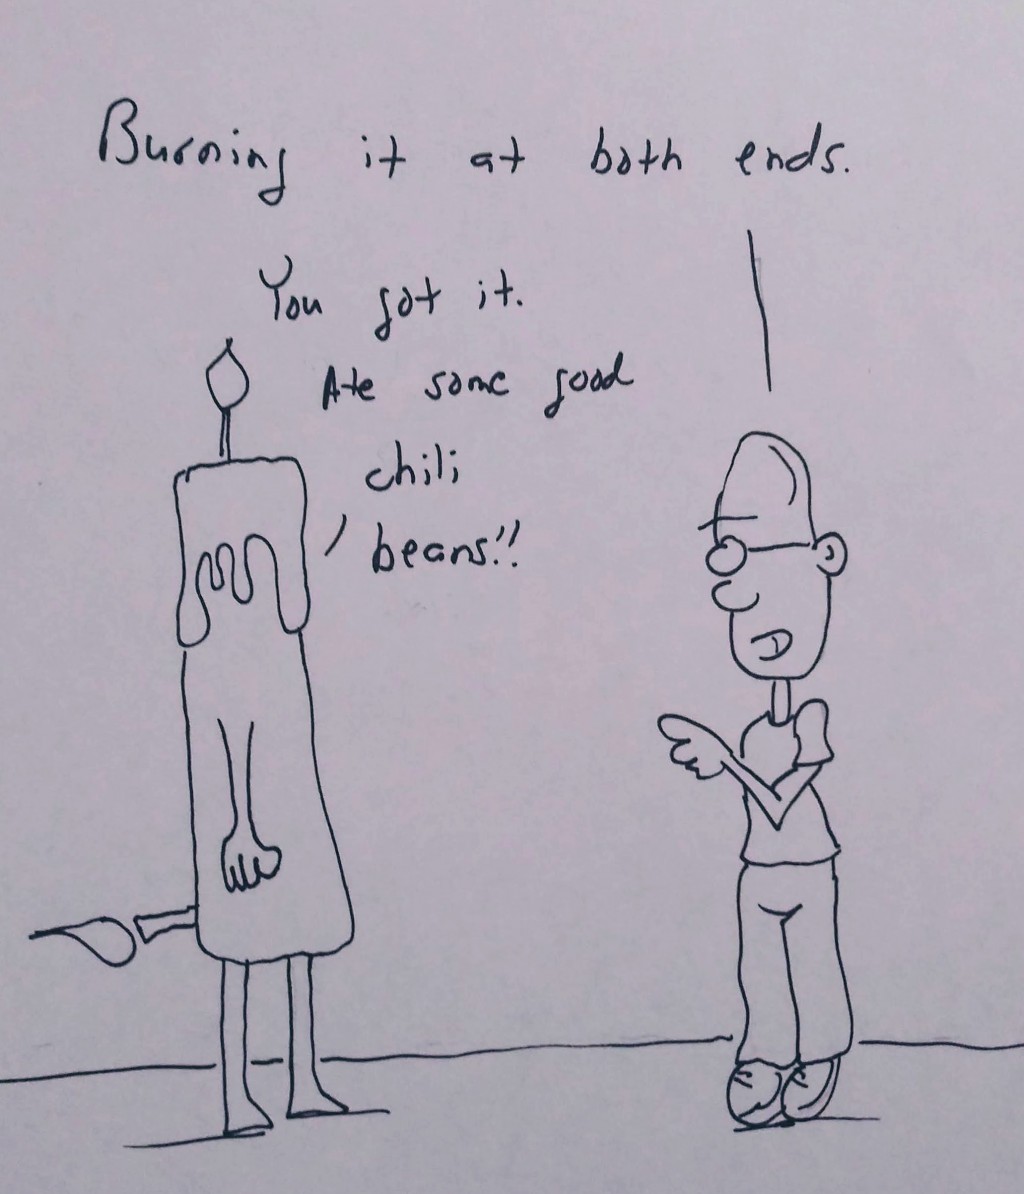 Burning it at both ends.
You got it.
Ate some good
chili
beans!!